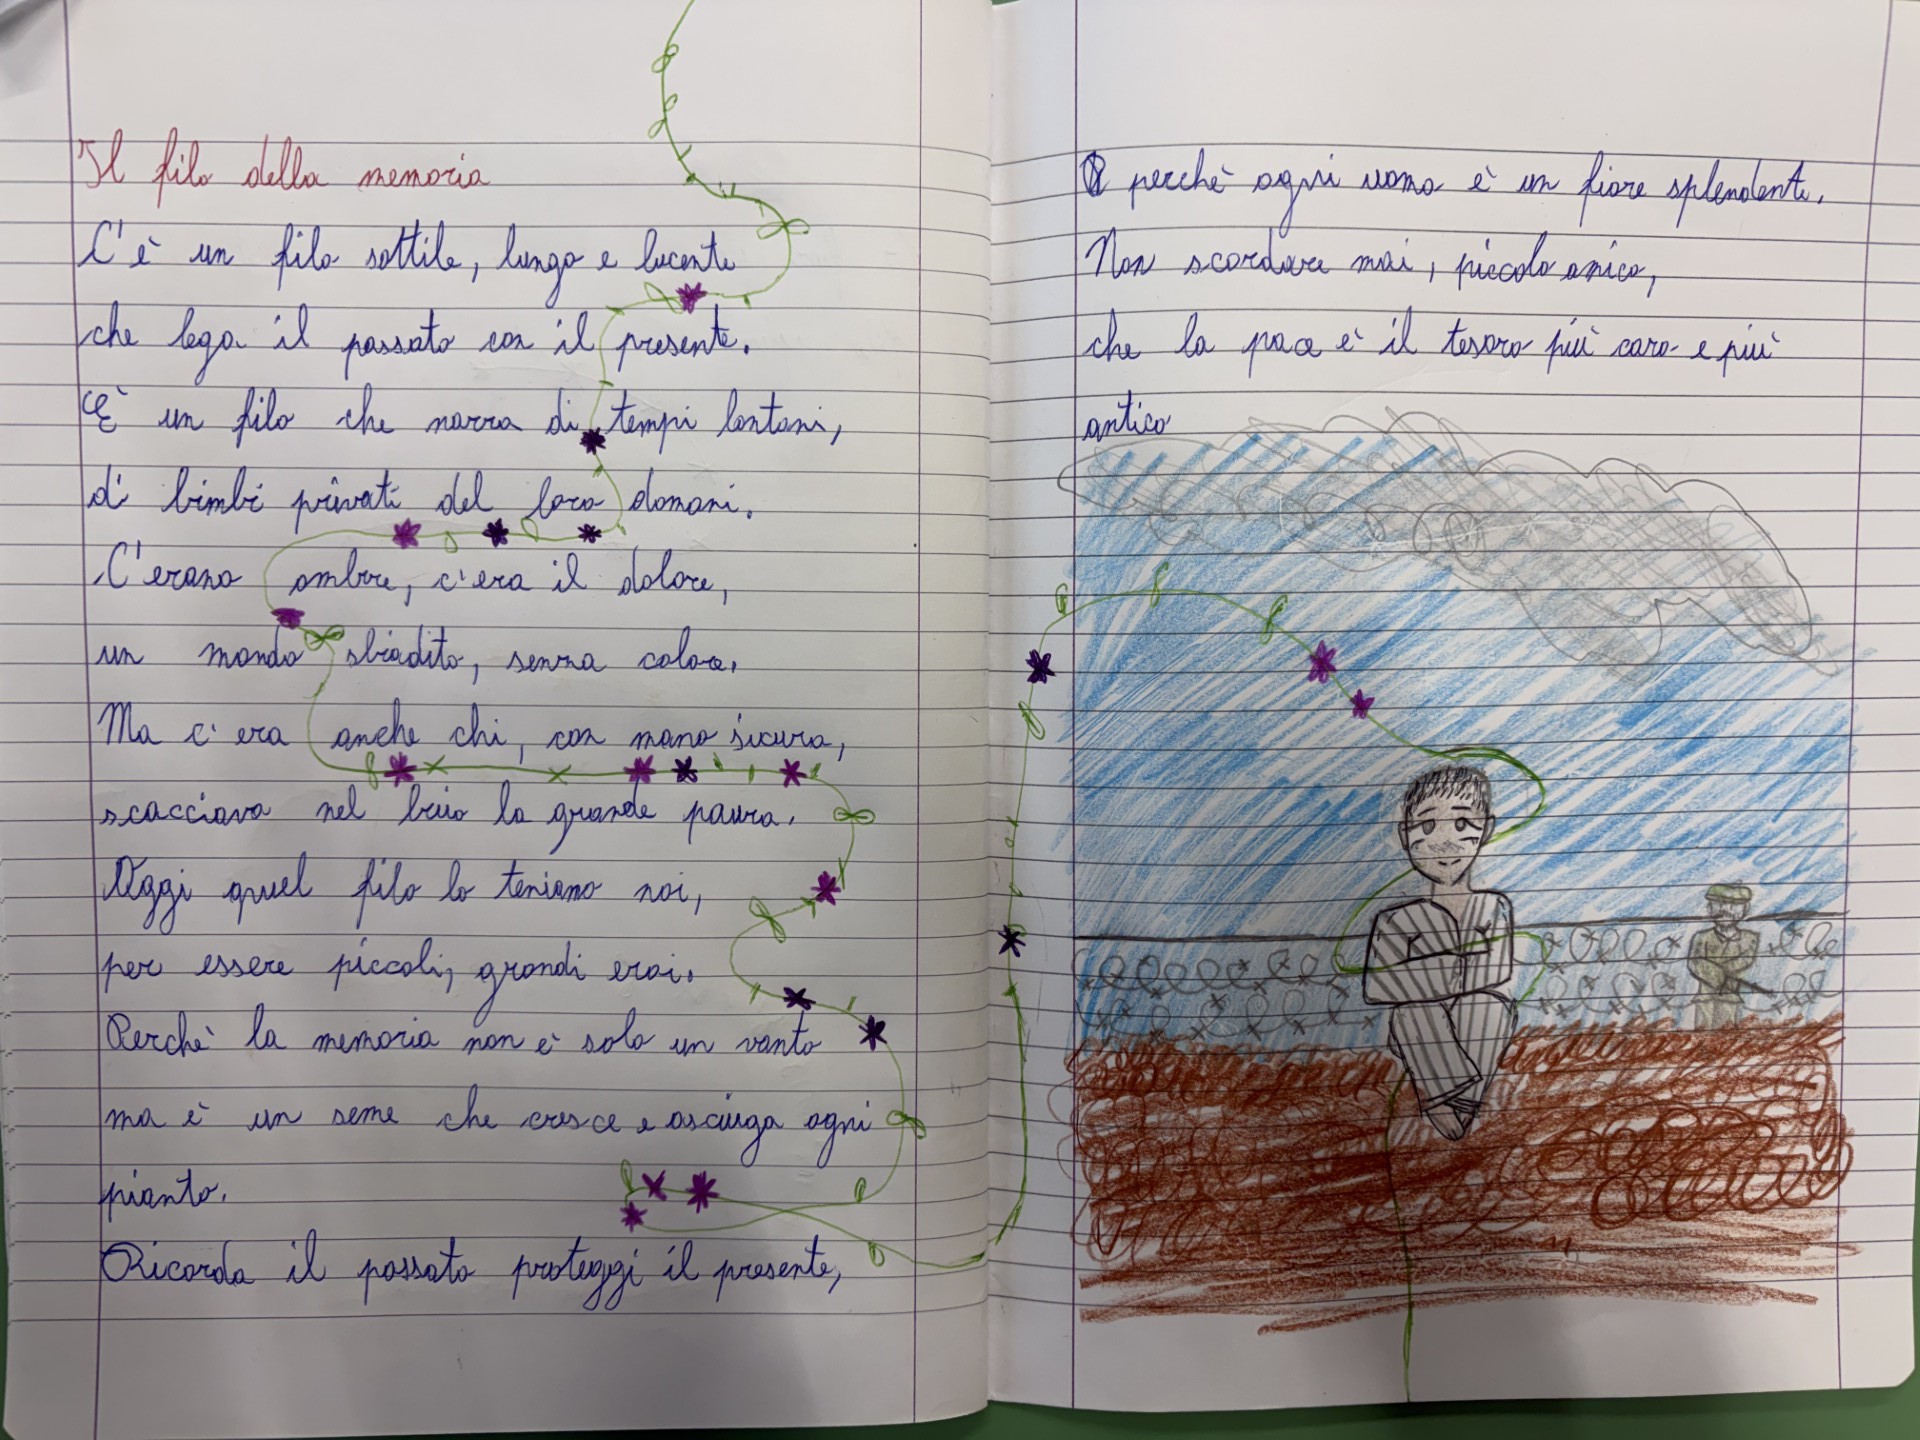 Il filo della memoria
C'è un filo sottile, lungo e lucente
che lega il passato con il presente.
È un filo che narra di tempi lontani,
di bimbi privati del loro domani.
C'erano ombre, c'era il dolore,
un mondo sbiadito, senza colore.
Ma c'era anche chi, con mano sicura,
scacciava nel buio la grande paura.
Oggi quel filo lo teniamo noi,
per essere piccoli, grandi eroi.
Perchè la memoria non è solo un vanto
ma è un seme che cresce e asciuga ogni
pianto.
Ricorda il passato proteggi il presente,
perchè ogni uomo è un fiore splendente.
Non scordare mai, piccolo amico,
che la pace è il tesoro più caro e più
antico